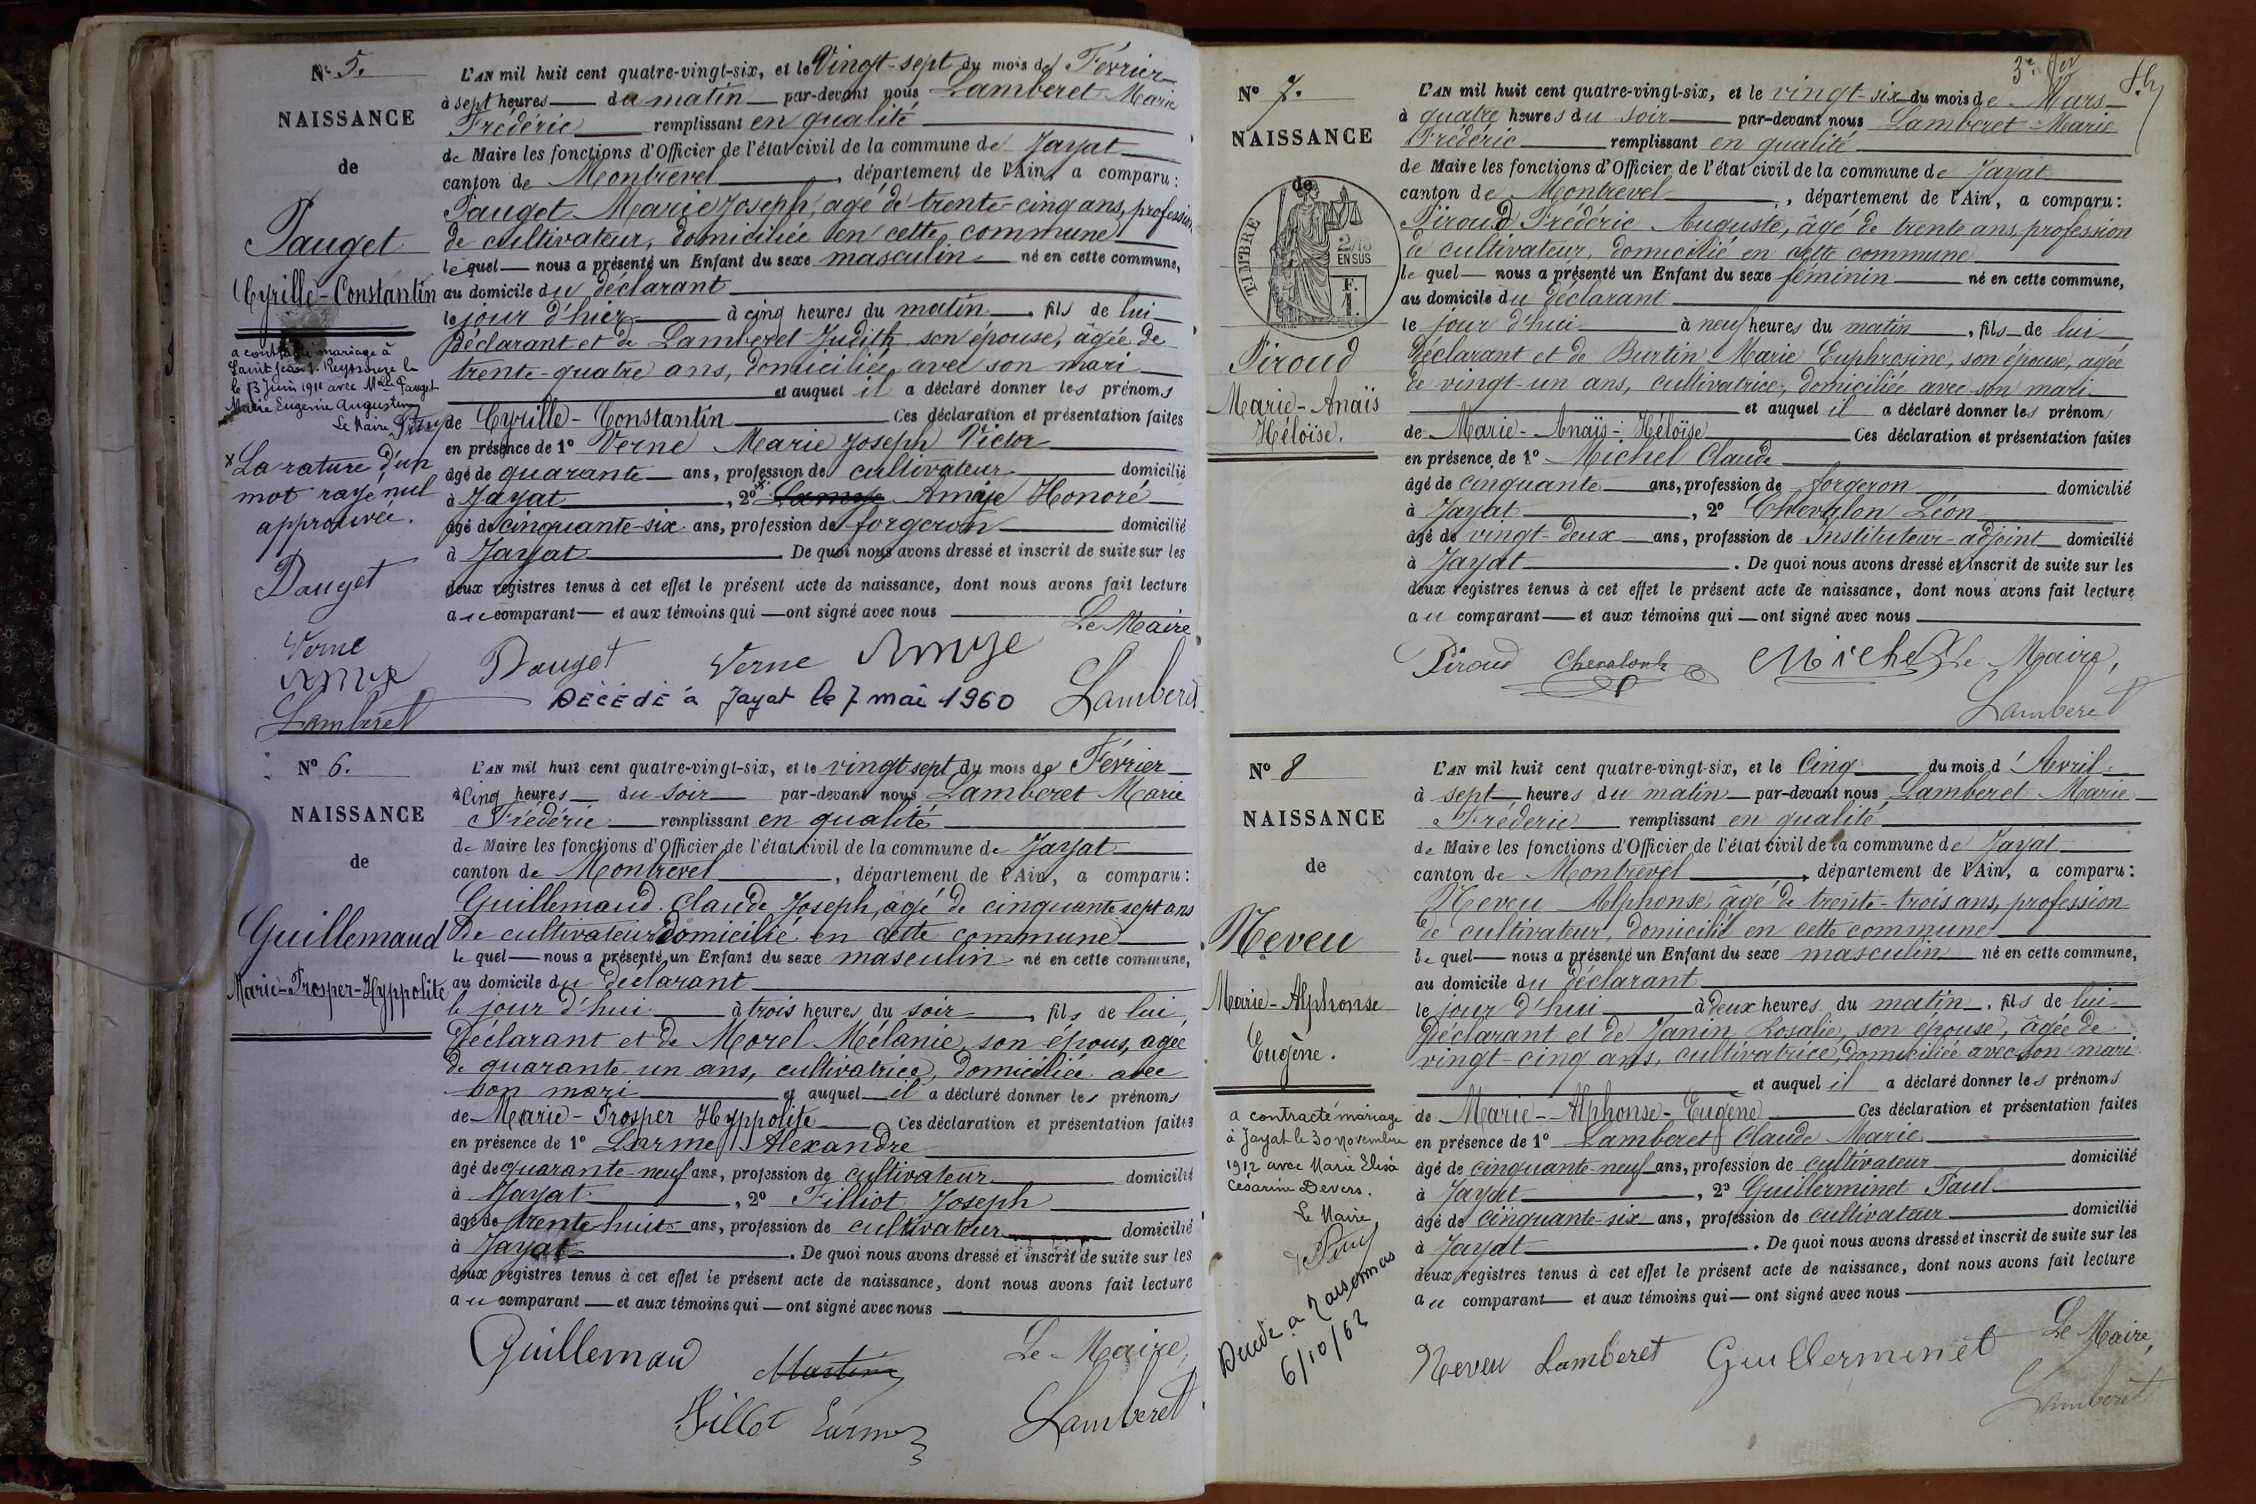 N° 5.
NAISSANCE
de
Pauget
Cyrille-Constantin
a contracté mariage à
Saint Jean s. Reyssouze le
le 13 Juin 1911 avec Melle Pauget
Marie Eugénie Augustine
Le Maire
x La rature d'un
mot rayé nul
approuvée.
Pauget
Verne
Amye
Lamberet
L'AN mil huit cent quatre-vingt-six, et le Vingt-sept du mois de Février
à sept heures du matin par-devant nous Lamberet Marie
Frédéric remplissant en qualité
de Maire les fonctions d'Officier de l'état civil de la commune de Jayat
canton de Montrevel, département de l'Ain, a comparu:
Pauget Marie Joseph, agé de trente-cinq ans, profession
de cultivateur, domiciliée en cette commune
lequel nous a présenté un Enfant du sexe masculin né en cette commune,
au domicile du déclarant
le jour d'hier à cinq heures du matin, fils de lui
Déclarant et de Lamberet Judith son épouse, âgée de
trente-quatre ans, domiciliée avec son mari
et auquel il a déclaré donner les prénoms
de Cyrille-Constantin Ces déclaration et présentation faites
en présence de 1° Verne Marie Joseph Victor
âgé de quarante ans, profession de cultivateur domicilié
à Jayat, 2° x Amye Honoré
âgé de cinquante-six ans, profession de forgeron domicilié
à Jayat. De quoi nous avons dressé et inscrit de suite sur les
deux registres tenus à cet effet le présent acte de naissance, dont nous avons fait lecture
au comparant et aux témoins qui ont signé avec nous
Le Maire
Pauget Verne Amye
DÉCÉDÉ à Jayat le 7 mai 1960 Lamberet
N° 6.
NAISSANCE
de
Guillemaud
Marie-Prosper-Hyppolite
L'AN mil huit cent quatre-vingt-six, et le vingt sept du mois de Février
à Cinq heures du soir par-devant nous Lamberet Marie
Frédéric remplissant en qualité
de Maire les fonctions d'Officier de l'état civil de la commune de Jayat
canton de Montrevel, département de l'Ain, a comparu:
Guillemaud Claude Joseph, âgé de cinquante sept ans
de cultivateur domicilié en cette commune
lequel nous a présenté un Enfant du sexe masculin né en cette commune,
au domicile du déclarant
le jour d'hui à trois heures du soir, fils de lui
Déclarant et de Morel Mélanie, son épous, agée
de quarante un ans, cultivatrice, domiciliée avec
son mari et auquel il a déclaré donner les prénoms
de Marie-Prosper Hyppolite Ces déclaration et présentation faites
en présence de 1° Larme Alexandre
âgé de quarante-neuf ans, profession de cultivateur domicilié
à Jayat, 2° Filliot Joseph
âgé de trente huit ans, profession de cultivateur domicilié
à Jayat. De quoi nous avons dressé et inscrit de suite sur les
deux registres tenus à cet effet le présent acte de naissance, dont nous avons fait lecture
au comparant et aux témoins qui ont signé avec nous
Guillemaud Le Maire,
Lamberet
3e
N° 7.
NAISSANCE
de
TIMBRE
2/10
EN SUS
F.
1.
Piroud
Marie-Anaïs
Héloïse.
L'AN mil huit cent quatre-vingt-six, et le vingt-six du mois de Mars
à quatre heures du soir par-devant nous Lamberet Marie
Frédéric remplissant en qualité
de Maire les fonctions d'Officier de l'état civil de la commune de Jayat
canton de Montrevel, département de l'Ain, a comparu:
Piroud Frédéric Auguste, âgé de trente ans, profession
de cultivateur, domicilié en cette commune
lequel nous a présenté un Enfant du sexe féminin né en cette commune,
au domicile du déclarant
le jour d'hui à neuf heures du matin, fils de lui
Déclarant et de Burtin Marie Euphrosine, son épouse, agée
de vingt-un ans, cultivatrice, domiciliée avec son mari
et auquel il a déclaré donner les prénoms
de Marie-Anaïs-Héloïse Ces déclaration et présentation faites
en présence de 1° Michel Claude
âgé de cinquante ans, profession de forgeron domicilié
à Jayat, 2° Chevalon Léon
âgé de vingt-deux ans, profession de Instituteur-adjoint domicilié
à Jayat. De quoi nous avons dressé et inscrit de suite sur les
deux registres tenus à cet effet le présent acte de naissance, dont nous avons fait lecture
au comparant et aux témoins qui ont signé avec nous
Piroud Michel Le Maire,
Lamberet
N° 8
NAISSANCE
de
Neveu
Marie-Alphonse
Eugène.
a contracté mariage
à Jayat le 30 novembre
1912 avec Marie Elisa
Césarine Devers.
Le Maire
Décédé a
6/10/62
L'AN mil huit cent quatre-vingt-six, et le Cinq du mois d'Avril
à sept heures du matin par-devant nous Lamberet Marie
Frédéric remplissant en qualité
de Maire les fonctions d'Officier de l'état civil de la commune de Jayat
canton de Montrevel, département de l'Ain, a comparu:
Neveu Alphonse, âgé de trente-trois ans, profession
de cultivateur, domicilié en cette commune
lequel nous a présenté un Enfant du sexe masculin né en cette commune,
au domicile du déclarant
le jour d'hui à deux heures du matin, fils de lui
Déclarant et de Janin Rosalie, son épouse, âgée de
vingt-cinq ans, cultivatrice, domiciliée avec son mari
et auquel il a déclaré donner les prénoms
de Marie-Alphonse-Eugène Ces déclaration et présentation faites
en présence de 1° Lamberet Claude Marie
âgé de cinquante-neuf ans, profession de cultivateur domicilié
à Jayat, 2° Guillerminet Paul
âgé de cinquante-six ans, profession de cultivateur domicilié
à Jayat. De quoi nous avons dressé et inscrit de suite sur les
deux registres tenus à cet effet le présent acte de naissance, dont nous avons fait lecture
au comparant et aux témoins qui ont signé avec nous
Neveu Lamberet Guillerminet Le Maire,
Lamberet